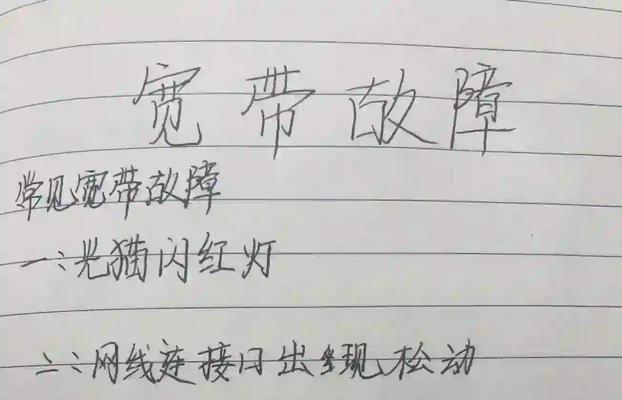 宽带故障
常见宽带故障
一:光猫闪红灯
二:网线连接口出现松动